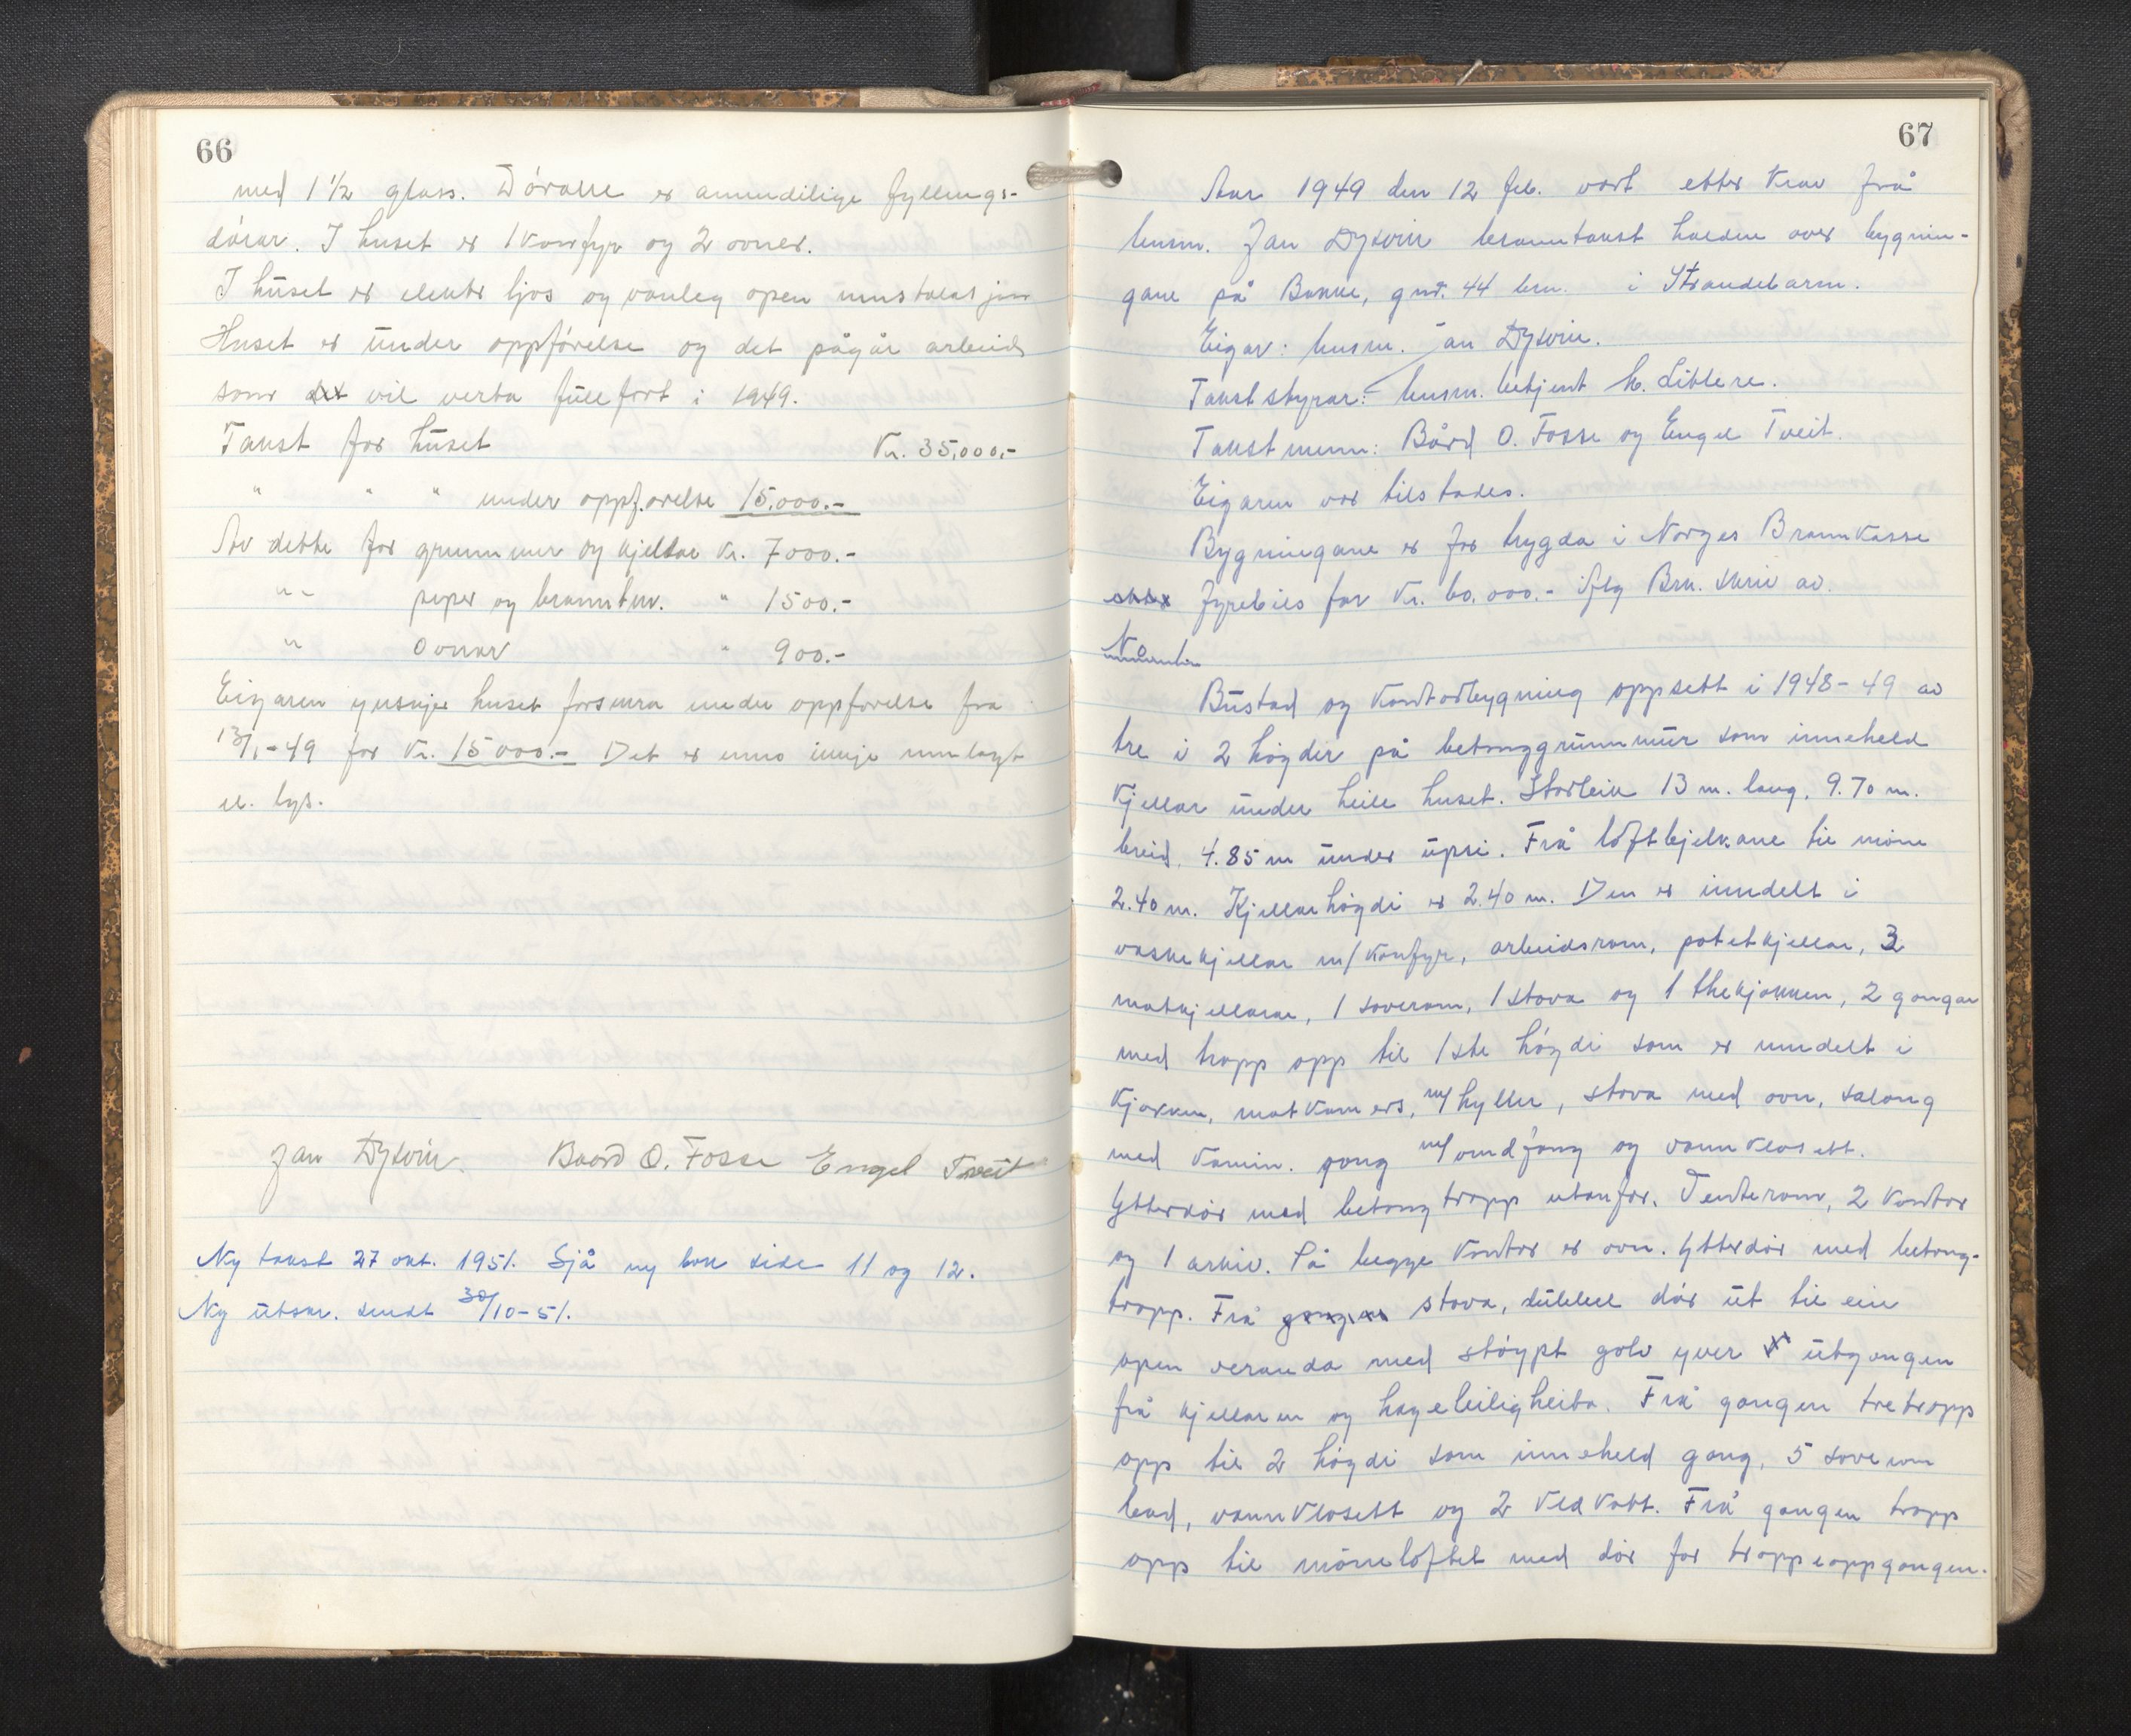 66
med 1 1/2 glass. Dörane er amindilige fyllings-
dörar. I huset er 1 komfyr og 2 ovner.
I huset er elektr ljos og vanleg open installasjon
Huset er under oppförelse og det pågår arbeid
som det vil verta fullfört i 1949.
Takst for huset Kr. 35,000,-
" " " under oppf.orelse 15.000.-
Av dette for grunnmur og kjellar Kr. 7000.-
" - piper og brannmur. " 1500.-
" Ovnar " 900.-
Eigaren ynskjer huset forsikra under oppforelse fra
13/1-49 for Kr. 15000.- Det er enno ikkje innlagt
el. lys.
Jan Dysvik. Baard O. Fosse Engel Tveit
Ny takst 27 okt. 1951. Sjå ny bok side 11 og 12.
Ny utskr. sendt 30/10-51.
67
Aar 1949 den 12 feb. vart etter krav frå
lensm. Jan Dysvik branntakst halden over bygnin-
gane på Bakke, gnr. 44 brn. i Strandebarm.
Eigar: lensm. Jan Dysvik.
Takststyrar: lensm. betjent h.
Takstmenn: Bård O. Fosse og Engel Tveit.
Eigaren var tilstades.
Bygningane er for trygda i Norges Brannkasse
fyrebils for Kr. 60.000.- iflg Brk. skriv av.
No
Bustad og kontorbygning oppsett i 1948-49 av
tre i 2 högder på betonggrunnmur som inneheld
kjellar under heile huset. Storleik 13 m. lang, 9.70 m.
breid, 4.85 m under upsi. Frå loftbjelkane til möne
2.40 m. Kjellarhögdi er 2.40 m. Den er inndelt i
vaskekjellar m/ komfyr, arbeidsrom, potetkjellar, 3
matkjellarar, 1 soverom, 1 stova og 1 thekjökken, 2 gangar
med tropp opp til 1ste högdi som er inndelt i
kjökken, matkamers, m/hyller, stova med ovn, salong
med kamin. gang m/vindfang og vannklosett.
Ytterdör med betongtropp utanfor. Venterom, 2 kontor
og 1 arkiv. På begge kontor er ovn. Ytterdör med betong-
tropp. Frå gangen stova, dubbel dör ut til ein
open veranda med stöypt golv yver utgongen
frå kjellaren og hageleiligheita. Frå gangen tretropp
opp til 2 högdi som inneheld gang, 5 soverom
bad, vannklosett og 2 kledkott. Frå gangen tropp
opp til möneloftet med dör for troppeoppgongen.